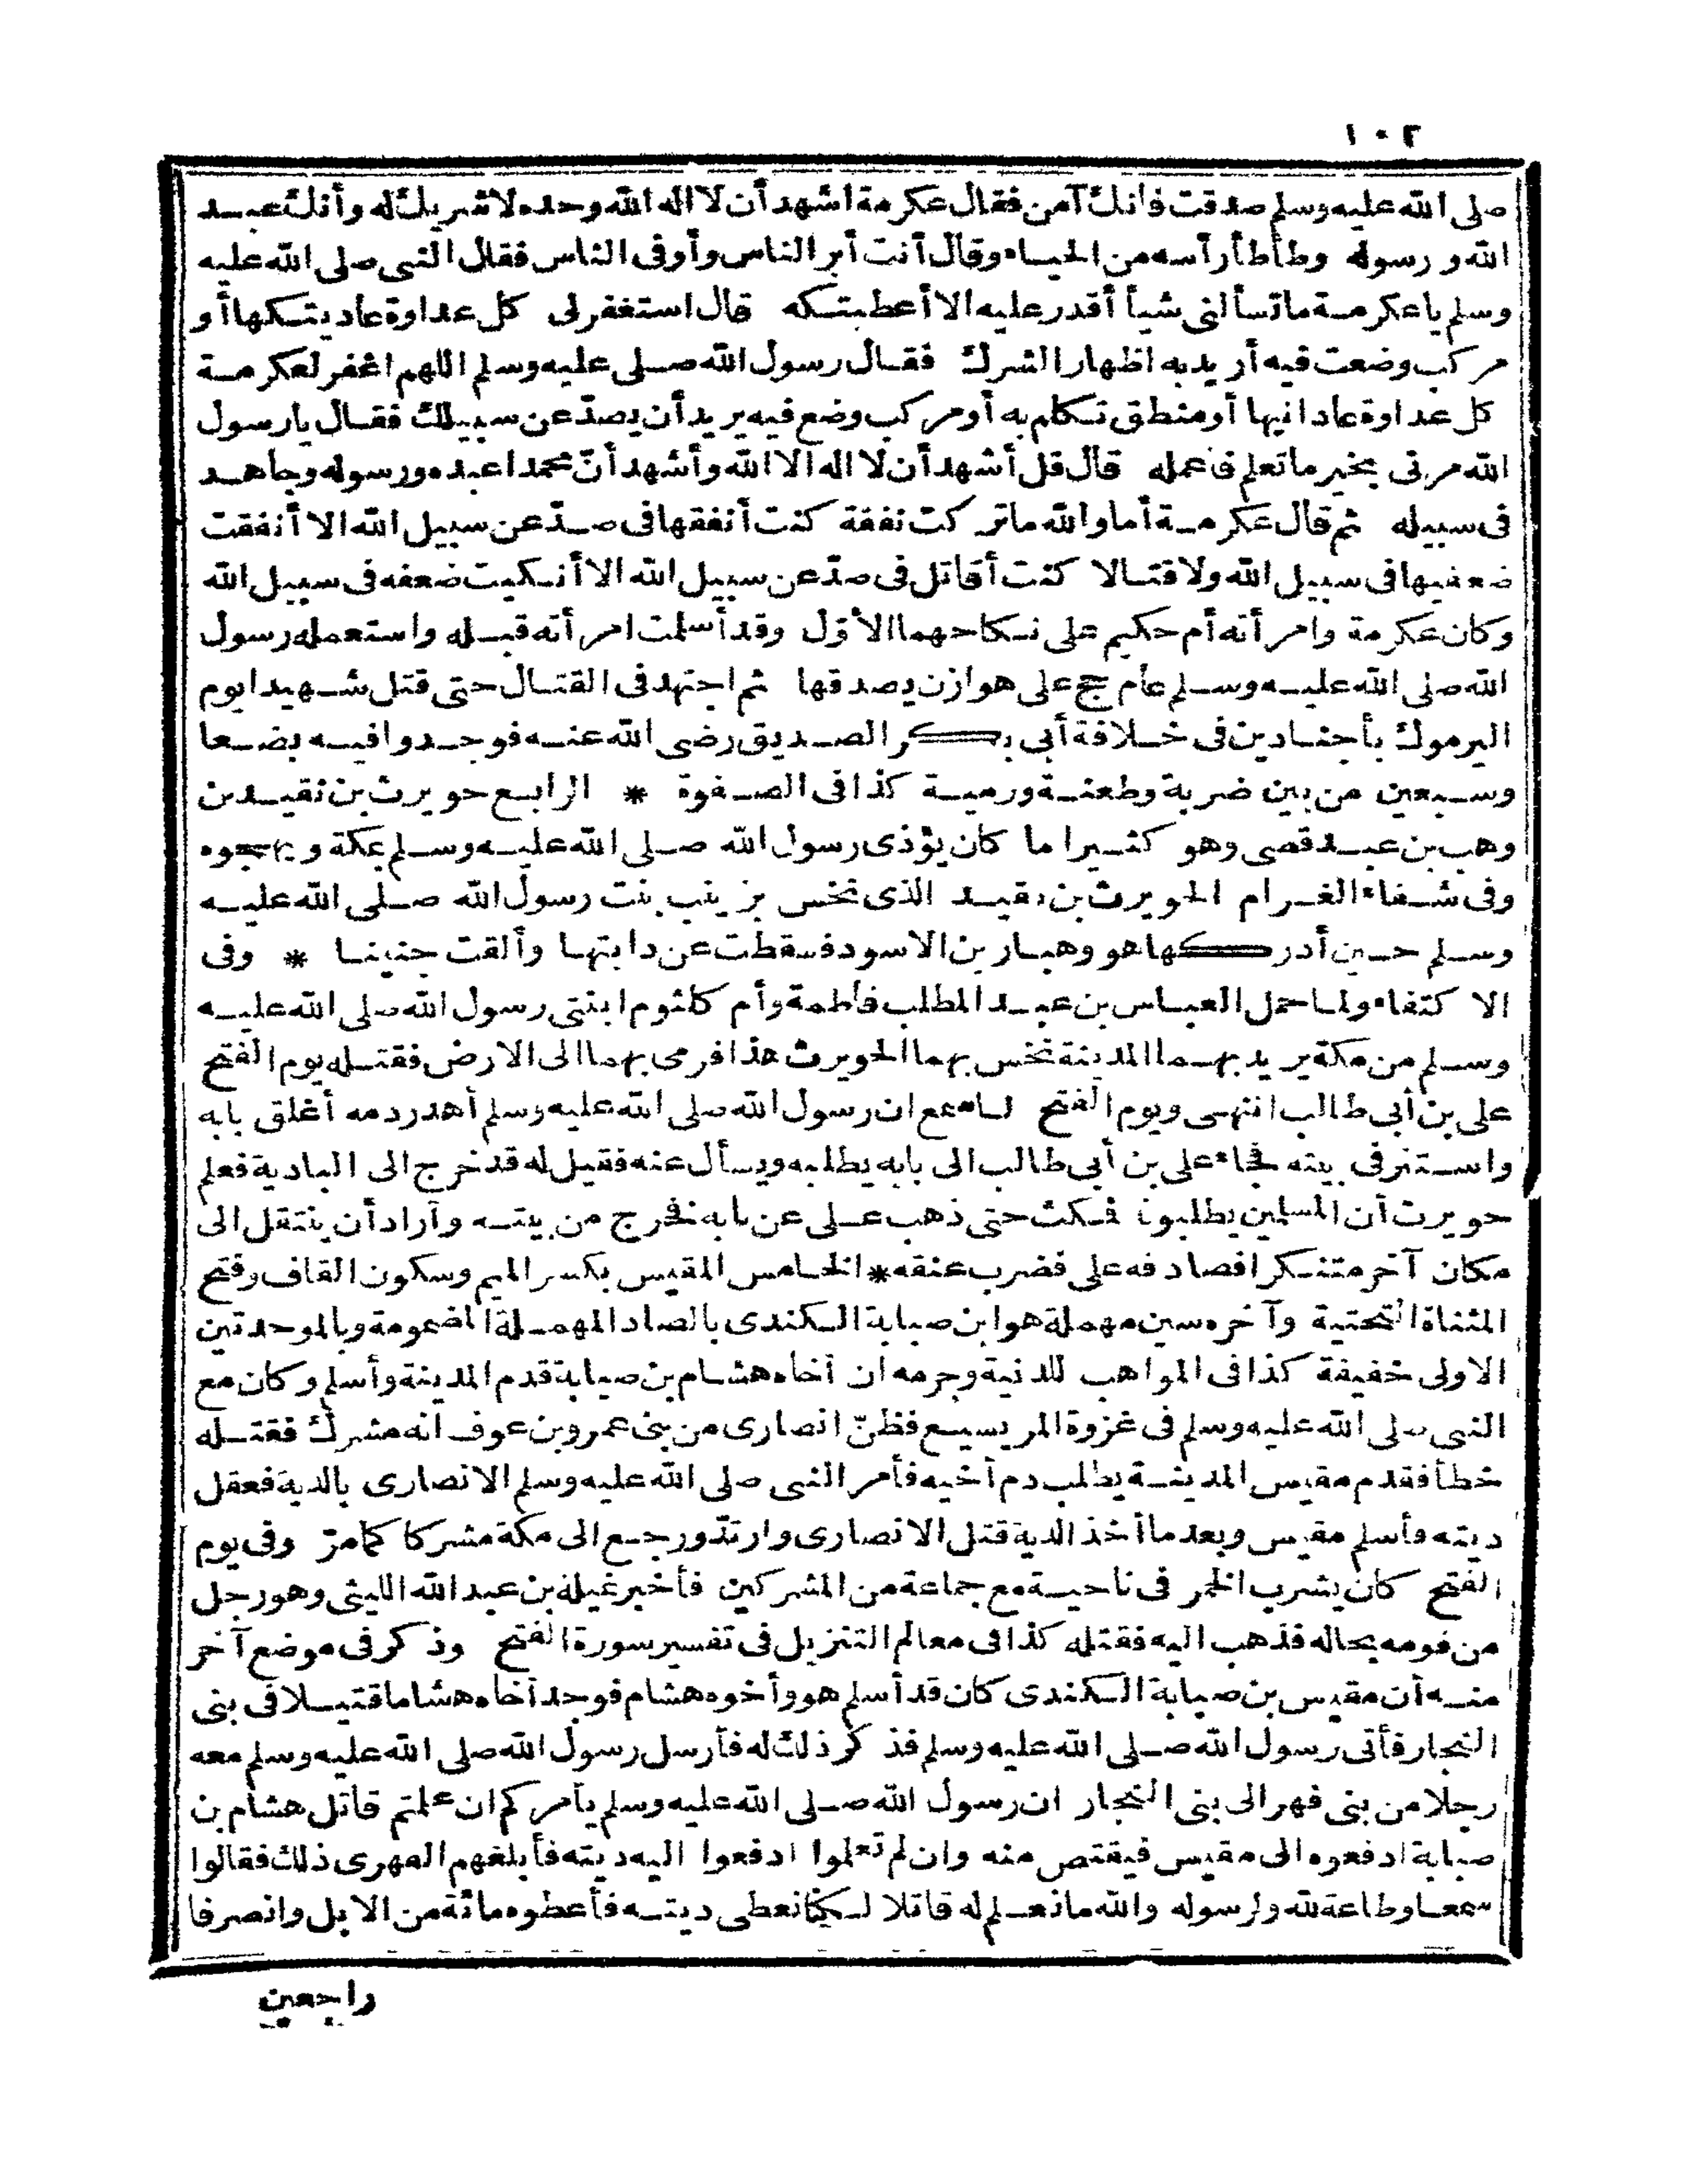 ١٠٢
صلى الله عليه وسلم صدقت فانك آمن فقال عكرمة اشهد أن لا اله الا الله وحده لا شريك له وأنك عبد
الله ورسوله وطأطأ رأسه من الحياء وقال أنت أبر الناس وأوفى الناس فقال النبى صلى الله عليه
وسلم يا عكرمة ما تسألنى شيأ أقدر عليه الا أعطيتكه قال استغفر لى كل عداوة عاديتكها أو
مركب وضعت فيه أريد به اظهار الشرك فقال رسول الله صلى عليه وسلم اللهم اغفر لعكرمة
كل عداوة عادانيها أو منطق تكلم به أو مركب وضع فيه يريد أن يصدّ عن سبيلك فقال يا رسول
الله مرنى بخير ما تعلم فاعمله قال قل أشهد أن لا اله الا الله وأشهد أنّ محمدا عبده ورسوله وجاهد
فى سبيله ثم قال عكرمة أما والله ما تركت نفقة كنت أنفقها فى صدّ عن سبيل الله الا أنفقت
ضعفيها فى سبيل الله ولا قتالا كنت أقاتل فى صدّ عن سبيل الله الا أنكيت ضعفه فى سبيل الله
وكان عكرمة وامرأته أم حكيم على نكاحهما الاوّل وقد أسلمت امرأته قبله واستعمله رسول
الله صلى الله عليه وسلم عام حج على هوازن يصدقها ثم اجتهد فى القتال حتى قتل شهيدا يوم
اليرموك بأجنادين فى خلافة أبى بكر الصديق رضى الله عنه فوجدوا فيه بضعا
وسبعين من بين ضربة وطعنة ورمية كذا فى الصفوة * الرابع حويرث بن نقيد بن
وهب بن عبد قصى وهو كثيرا ما كان يؤذى رسول الله صلى الله عليه وسلم بمكة ويهجوه
وفى شفاء الغرام الحويرث بن نقيد الذى نخس بزينب بنت رسول الله صلى الله عليه
وسلم حين أدركها هو وهبار بن الاسود فسقطت عن دابتها وألقت جنينا * وفى
الاكتفاء ولما حمل العباس بن عبد المطلب فاطمة وأم كلثوم ابنتى رسول الله صلى الله عليه
وسلم من مكة يريد بهما المدينة نخس بهما الحويرث هذا فرمى بهما الى الارض فقتله يوم الفتح
على بن أبى طالب انتهى ويوم الفتح لما سمع ان رسول الله صلى الله عليه وسلم أهدر دمه أغلق بابه
واستتر فى بيته فجاء على بن أبى طالب الى بابه يطلبه ويسأل عنه فقيل له قد خرج الى البادية فعلم
حويرث أن المسلمين يطلبونه فمكث حتى ذهب على عن بابه فخرج من بيته وأراد أن ينتقل الى
مكان آخر متنكرا فصادفه على فضرب عنقه * الخامس المقيس بكسر الميم وسكون القاف وفتح
المثناة التحتية وآخره سين مهملة هو ابن صبابة الكندى بالصاد المهملة المضمومة وبالموحدتين
الاولى خفيفة كذا فى المواهب اللدنية وجرمه ان أخاه هشام بن صبابة قدم المدينة وأسلم وكان مع
النبى صلى الله عليه وسلم فى غزوة المريسيع فظنّ انصارى من بنى عمرو بن عوف انه مشرك فقتله
خطأ فقدم مقيس المدينة يطلب دم أخيه فأمر النبى صلى الله عليه وسلم الانصارى بالدية فعقل
ديته وأسلم مقيس وبعد ما أخذ الدية قتل الانصارى وارتدّ ورجع الى مكة مشركا كما مرّ وفى يوم
الفتح كان يشرب الخمر فى ناحية مع جماعة من المشركين فأخبر غيلة بن عبد الله الليثى وهو رجل
من قومه بحاله فذهب اليه فقتله كذا فى معالم التنزيل فى تفسير سورة الفتح وذكر فى موضع آخر
منه أن مقيس بن صبابة الكندى كان قد أسلم هو وأخوه هشام فوجد أخاه هشاما قتيلا فى بنى
النجار فأتى رسول الله صلى الله عليه وسلم فذكر ذلك له فأرسل رسول الله صلى الله عليه وسلم معه
رجلا من بنى فهر الى بنى النجار ان رسول الله صلى الله عليه وسلم يأمركم ان علمتم قاتل هشام بن
صبابة ادفعوه الى مقيس فيقتص منه وان لم تعلموا ادفعوا اليه ديته فأبلغهم الفهرى ذلك فقالوا
سمعا وطاعة لله ولرسوله والله ما نعلم له قاتلا لكنا نعطى ديته فأعطوه مائة من الابل وانصرفا
راجعين